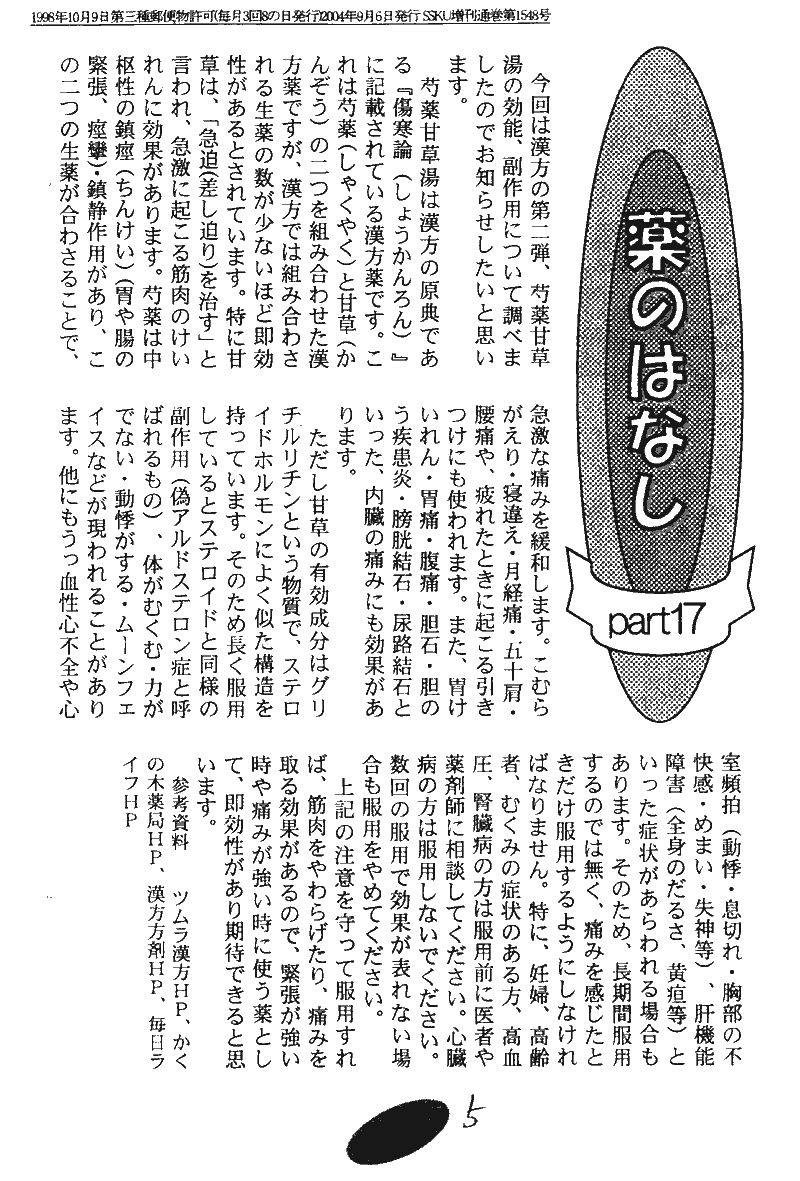 1998年10月9日第三種郵便物許可(毎月3回8の日発行)2004年9月6日発行 SSKU増刊通巻第1548号
薬のはなし
part17
今回は漢方の第二弾、芍薬甘草
湯の効能、副作用について調べま
したのでお知らせしたいと思い
ます。
芍薬甘草湯は漢方の原典であ
る『傷寒論(しょうかんろん)』
に記載されている漢方薬です。こ
れは芍薬(しゃくやく)と甘草(か
んぞう)の二つを組み合わせた漢
方薬ですが、漢方では組み合わさ
れる生薬の数が少ないほど即効
性があるとされています。特に甘
草は、「急迫(差し迫り)を治す」と
言われ、急激に起こる筋肉のけい
れんに効果があります。芍薬は中
枢性の鎮痙(ちんけい)(胃や腸の
緊張、痙攣)・鎮静作用があり、こ
の二つの生薬が合わさることで、
急激な痛みを緩和します。こむら
がえり・寝違え・月経痛・五十肩・
腰痛や、疲れたときに起こる引き
つけにも使われます。また、胃け
いれん・胃痛・腹痛・胆石・胆の
う疾患炎・膀胱結石・尿路結石と
いった、内臓の痛みにも効果があ
ります。
ただし甘草の有効成分はグリ
チルリチンという物質で、ステロ
イドホルモンによく似た構造を
持っています。そのため長く服用
しているとステロイドと同様の
副作用(偽アルドステロン症と呼
ばれるもの)、体がむくむ・力が
でない・動悸がする・ムーンフェ
イスなどが現われることがあり
ます。他にもうっ血性心不全や心
室頻拍(動悸・息切れ・胸部の不
快感・めまい・失神等)、肝機能
障害(全身のだるさ、黄疸等)と
いった症状があらわれる場合も
あります。そのため、長期間服用
するのでは無く、痛みを感じたと
きだけ服用するようにしなけれ
ばなりません。特に、妊婦、高齢
者、むくみの症状のある方、高血
圧、腎臓病の方は服用前に医者や
薬剤師に相談してください。心臓
病の方は服用しないでください。
数回の服用で効果が表れない場
合も服用をやめてください。
上記の注意を守って服用すれ
ば、筋肉をやわらげたり、痛みを
取る効果があるので、緊張が強い
時や痛みが強い時に使う薬とし
て、即効性があり期待できると思
います。
参考資料　ツムラ漢方HP、かく
の木薬局HP、漢方方剤HP、毎日ラ
イフHP
5